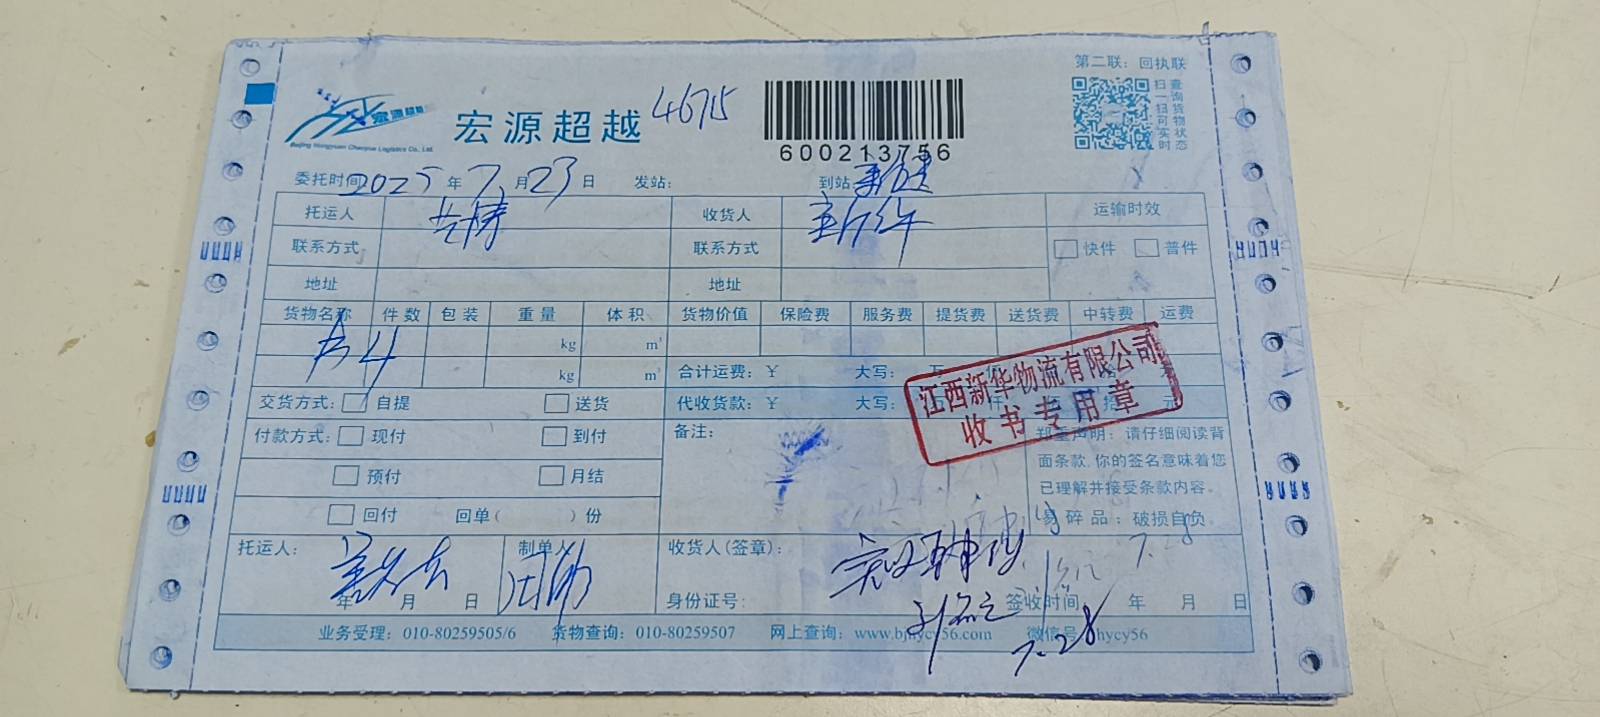 第二联：回执联
宏源超越
Beijing Hongyuan Chaoyue Logistics Co., Ltd.
宏源超越 4675
600213756
扫一扫可实时
查询货物状态
委托时间 2025 年 7 月 23 日 发站： 到站：
托运人 收货人 运输时效
联系方式 联系方式 快件 普件
地址 地址
货物名称 件数 包装 重量 体积 货物价值 保险费 服务费 提货费 送货费 中转费 运费
4 kg m³
kg m³ 合计运费：￥ 大写： 万
交货方式： 自提 送货 代收货款：￥ 大写： 仟 拾 元
江西新华物流有限公司
收书专用章
付款方式： 现付 到付 备注： 郑重声明：请仔细阅读背
面条款，你的签名意味着您
预付 月结 已理解并接受条款内容。
回付 回单（ ）份 易碎品：破损自负。
7.28
托运人： 制单人 收货人(签章)：
年 月 日 身份证号： 签收时间 年 月 日
7.28
业务受理：010-80259505/6 货物查询：010-80259507 网上查询：www.bjhycy56.com 微信号 hycy56